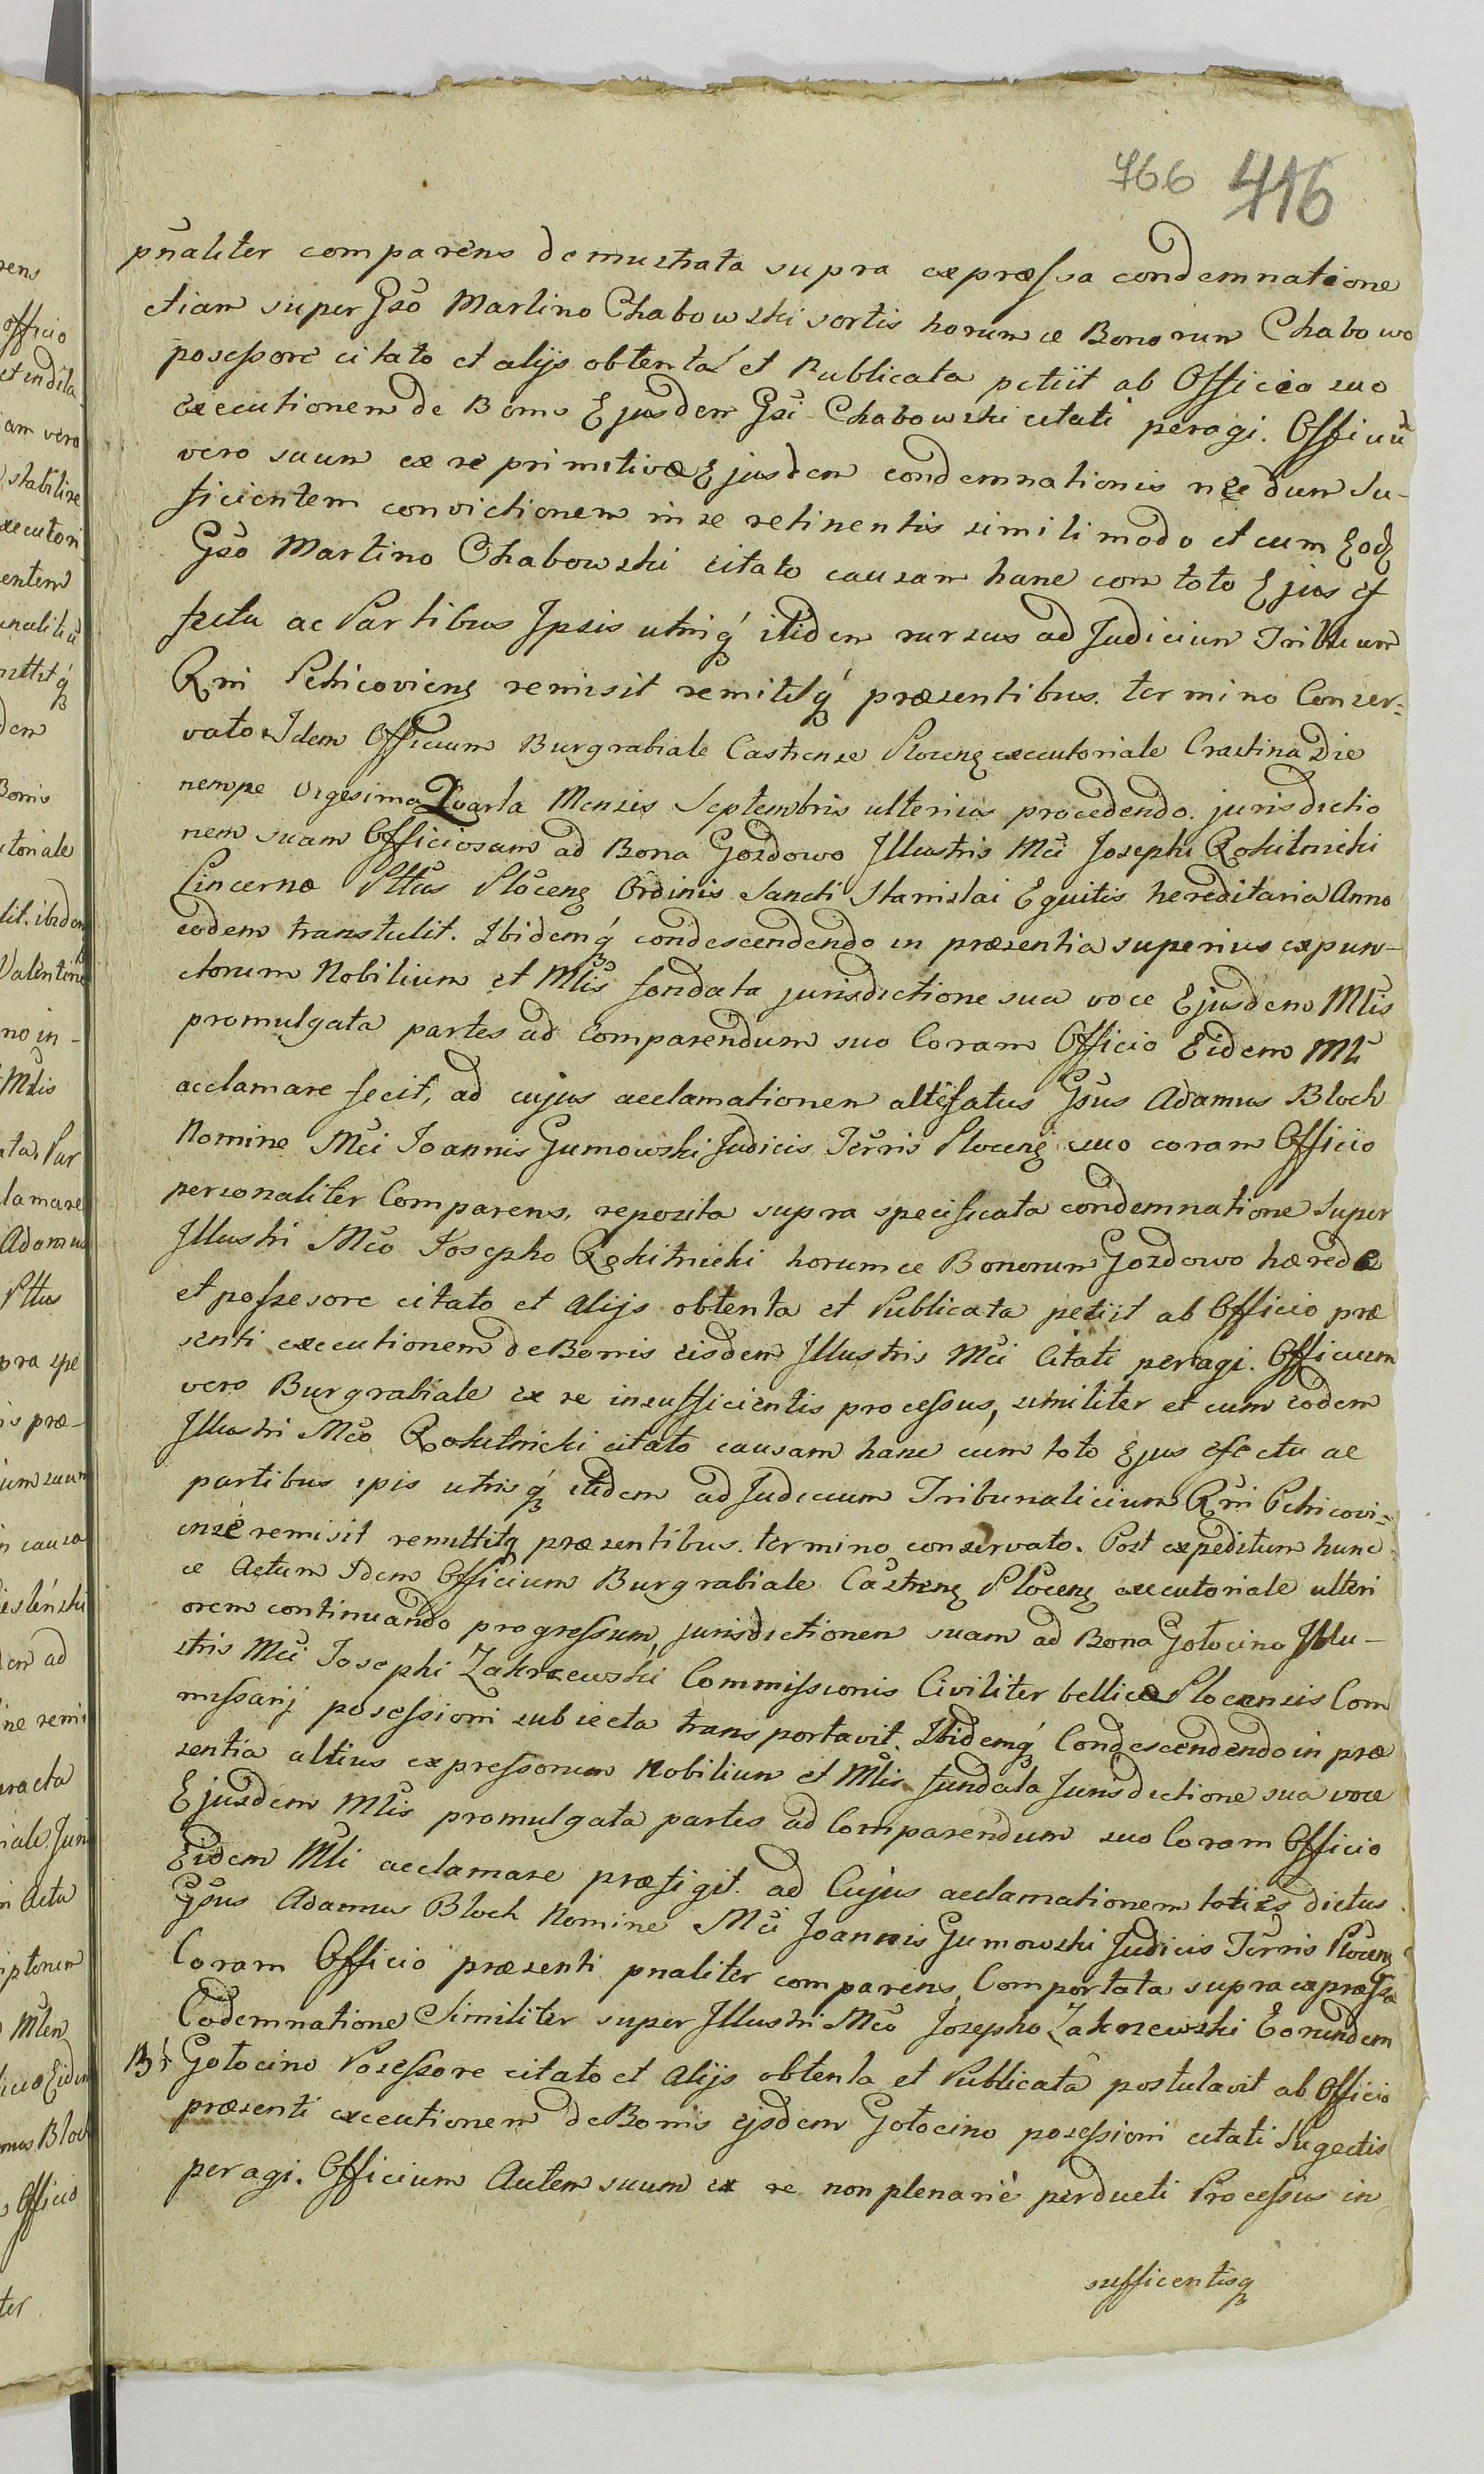 766 416
pñaliter comparens demustrata supra expræssa condemnatione
etiam super Gso Martino Chabowski sortis horumce Bonorum Chabowo
posessore citato et alijs obtenta et Publicata petiit ab Officio suo
executionem de Bonis Ejusdem Gsi Chabowski citati peragi. Officiũ
vero suum ex re primitivæ Ejusdem condemnationis necdum su-
ficientem convictionem in se retinentis simili modo et cum Eodę
Gso Martino Chabowski citato causam hanc cum toto Ejus ef
fectu ac Partibus Ipsis utrisq́ itidem rursus ad Judicium Tribu
Rni Petricovienę remisit remititq́ præsentibus. termino Conser-
vato. Idem Officium Burgrabiale Castrense Plocenę executoriale Crastina Die
nempe Vigesima Quarta Mensis Septembris ulterius procedendo. jurisdictio
nem suam Officiosam ad Bona Gozdowo Illustris Mci Josephi Rokitnicki
Pincernæ Pttus Plocenę Ordinis Sancti Stanislai Equitis hereditaria Anno
eodem transtulit. Ibidemq́ condescendendo in præsentia superius expun-
ctorum Nobilium et Mlis fundata jurisdictione sua voce Ejusdem Mlis
promulgata partes ad Comparendum suo Coram Officio Eidem Mli
acclamare fecit, ad cujus acclamationem altefatus Gsus Adamus Bloch
Nomine Mci Joannis Gumowski Judicis Terris Plocenę suo coram Officio
personaliter Comparens, reposita supra specificata condemnatione super
Illustri Mco Josepho Rokitnicki horumce Bonorum Gozdowo hærede
et possesore citato et Alijs obtenta et Publicata petiit ab Officio præ
senti executionem de Bonis eisdem Illustris Mci Citati peragi. Officium
vero Burgrabiale ex re insufficientis processus, similiter et cum eodem
Illustri Mco Rokitnicki citato causam hanc cum toto Ejus efectu ac
partibus ipis utrisq́ itidem ad Judicium Tribunalicium Rni Petricovi-
ense remisit remittitq́ præsentibus. termino conservato. Post expeditum hunc
ce Actum Idem Officium Burgrabiale Castrenę Plocenę executoriale ulteri
orem continuando progressum, jurisdictionem suam ad Bona Gołocino Illu-
stris Mci Josephi Zakrzewski Commissionis Civiliter bellicæ Plocensis Com
missarij posessioni subiecta transportavit. Ibidemq́ Condescendendo in præ
sentia altius expressorum Nobilium et Mlis fundata Jurisdictione sua voce
Ejusdem Mlis promulgata partes ad Comparendum suo Coram Officio
Eidem Mli acclamare præfigit. ad Cujus acclamationem toties dictus
Gsus Adamus Bloch Nomine Mci Joannis Gumowski Judicis Terris Plocenę
Coram Officio præsenti pnaliter comparens, Comportata supra expræssa
Codemnatione Similiter super Illustri Mco Josepho Zakrzewski Eorundem
Br Gołocino Posessore citato et Alijs obtenta et Publicata postulavit ab Officio
præsenti executionem de Bonis ejsdem Gołocino posessioni citati Sugectis
peragi. Officium Autem suum ex re non plenariè perducti Processus in
sufficentisq́